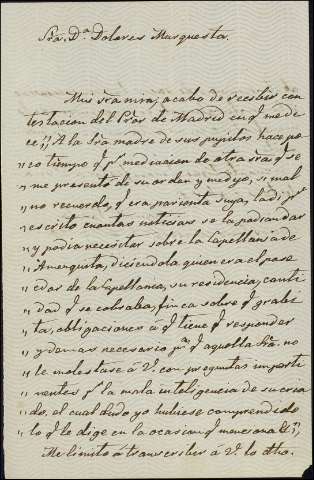 Sra. Da. Dolores Marquesta.
Mui sra mia; acabo de recibir con
testacion del Pror de Madrid en q. me di
ce; "A la Sra madre de sus pupilos hace po
" co tiempo q. pr mediacion de otra sra q. se
" me presentó de su orden y me dijo, si mal
" no recuerdo, q. era parienta suya, la di pr
" escrito cuantas noticias se la podian dar
" y podia necesitar sobre la Capellania de
" Amezqueta, diciendola quien era el posee
" dor de la Capellania, su residencia, canti
" dad q. se cobraba, finca sobre q. gravi
" ta, obligaciones á q. tiene q. responder
" y demas necesario pa. q. aquella Sra. no
" le molestase á V. con preguntas imperti
" nentes pr la mala inteligencia de su cria
" do, el cual dudo yo hubiese comprendido
" lo q. le dige en la ocasion q. menciona &";
Me limito á transcribir á V. lo dho.